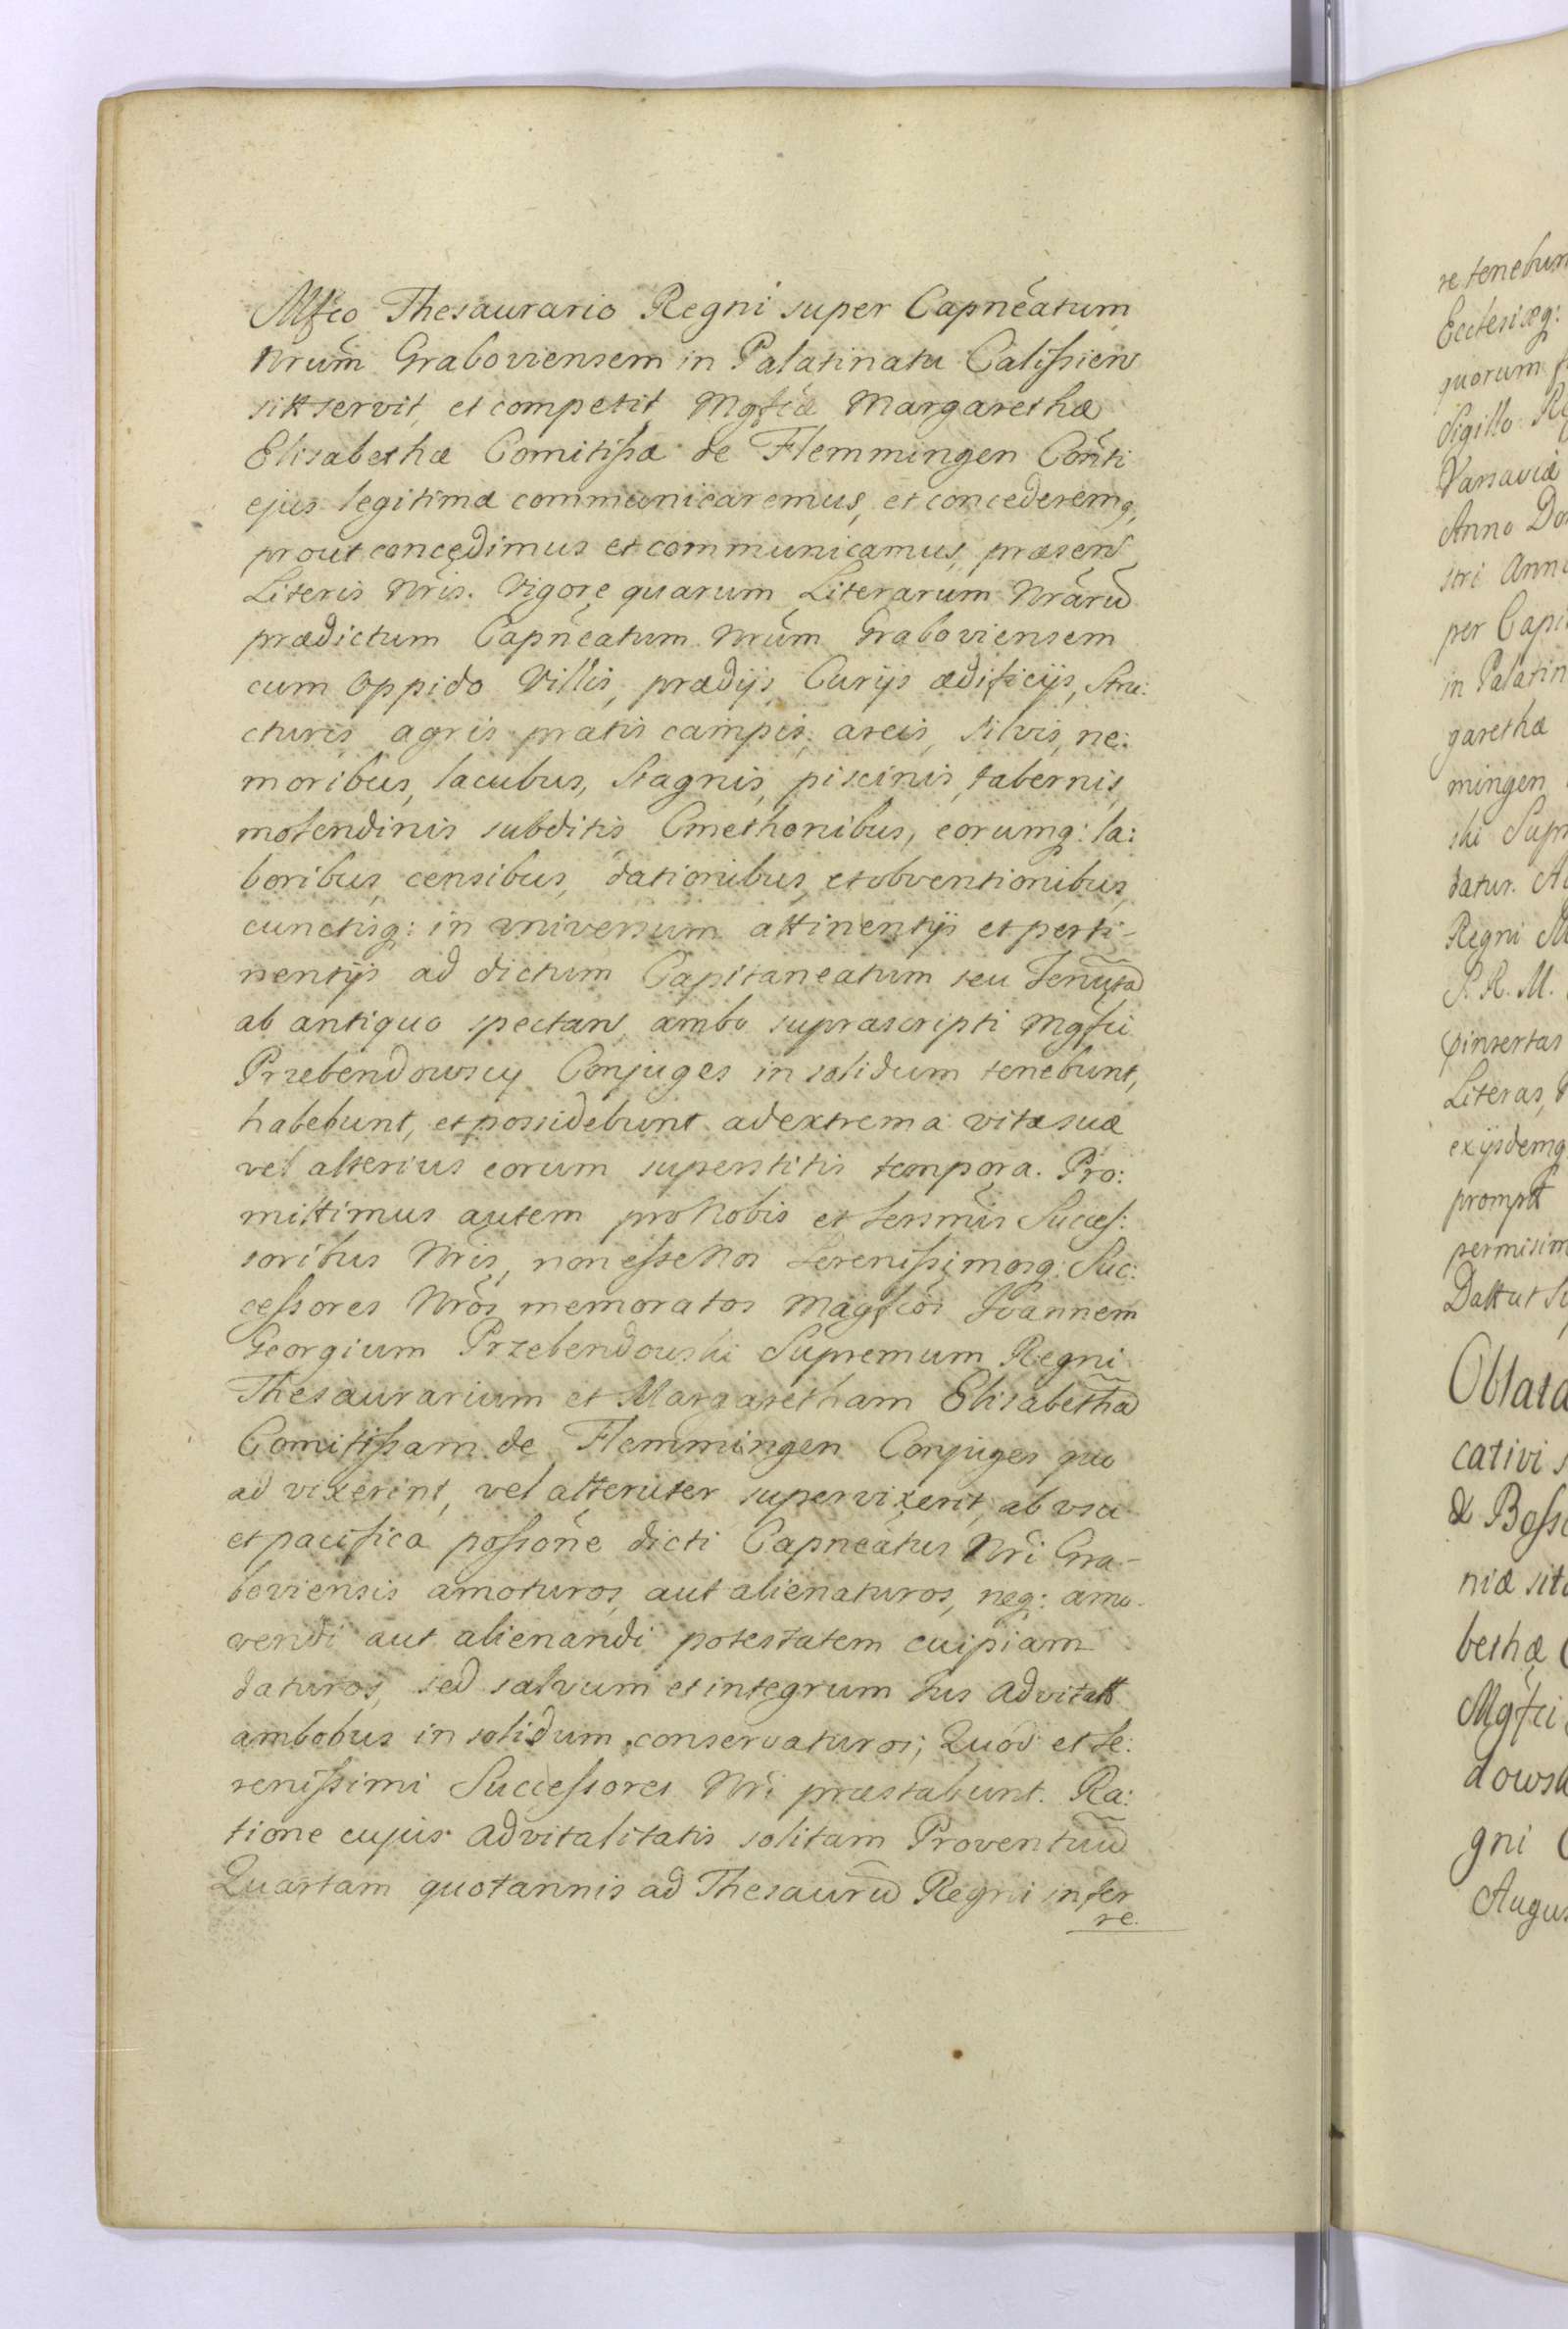 Mfco Thesaurario Regni super Capneatum
Nrum Graboviensem in Palatinatu Calissien
sitt servit, et competit, Mgfcæ Margarethæ
Elisabethæ Comitissæ de Flemmingen Conti
ejus legitimæ communicaremus, et concederemq,
prout concedimus et communicamus, præsen
Literis Nris. Vigore quarum Literarum Nrarū
prædictum Capneatum Nrum Graboviensem
cum Oppido Villis, prædijs, Curijs ædificijs, Stru:
cturis, agris pratis campis, areis, silvis, ne:
moribus, lacubus, Stagnis, piscinis, tabernis,
molendinis subditis Cmethonibus, eorumq: la:
boribus, censibus, dationibus, et obventionibus,
cunctisq: in universum attinentijs et perti-
nentijs ad dictum Capitaneatum seu Tenutā
ab antiquo spectan, ambo suprascripti Mgfci
Przebendowscy Conjuges in solidum tenebunt,
habebunt, et possidebunt ad extrema vitæ suæ
vel alterius eorum superstitis tempora. Pro:
mittimus autem pro Nobis et Sersmis Succes:
soribus Nris, non esse Nos Serenissimosq: Suc:
cessores Nros memoratos Magfcos Joannem
Georgium Przebendowski Supremum Regni
Thesaurarium et Margaretham Elisabethā
Comitissam de Flemmingen Conjuges quo
ad vixerint, vel alteruter supervixerit, ab usu
et pacifica possione dicti Capneatus Nri Gra-
boviensis amoturos, aut alienaturos, neq: amo-
vendi aut alienandi potestatem cuipiam
daturos, sed salvum et integrum Jus advitatt
ambobus in solidum conservaturos; Quod et Se:
renissimi Successores Nri præstabunt. Ra:
tione cujus advitalitatis solitam Proventuū
Quartam quotannis ad Thesaurū Regni infer
re.
re tenebun
Ecclesiæq:
quorum
Sigillo Re
Varsaviæ
Anno Do
stri Anno
per Capi
in Palatin
garethæ
mingen
ski Supr
datur. A
Regni M
S. R. M.
insertas
Literas,
exijsdemq
prompt
permisim
Datt ut Su
Oblata
cativi s
& Bosso
niæ sito
bethæ C
Mgfci
dowsk
gni C
Augus